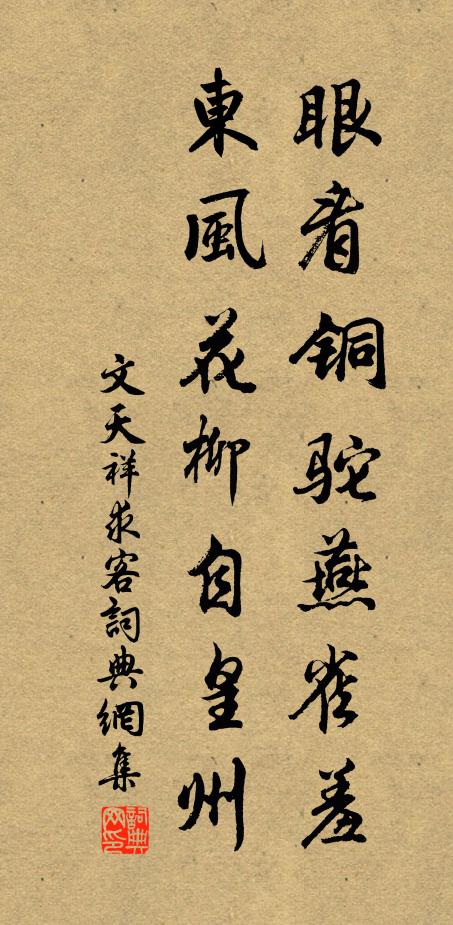 眼看铜驼燕雀羞
東風花柳自皇州
文天祥求客詞典網集
詞典网印